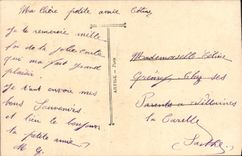 Ma chère petite amie Céline,
Je te remercie mille
fois de ta jolie carte
qui m'a fait grand
plaisir.
Je t'envoie mes
bons Souvenirs
et suis toujours
ta petite amie
M G.
Mademoiselle Céline
chez ses
Parents à
la
Sarthe